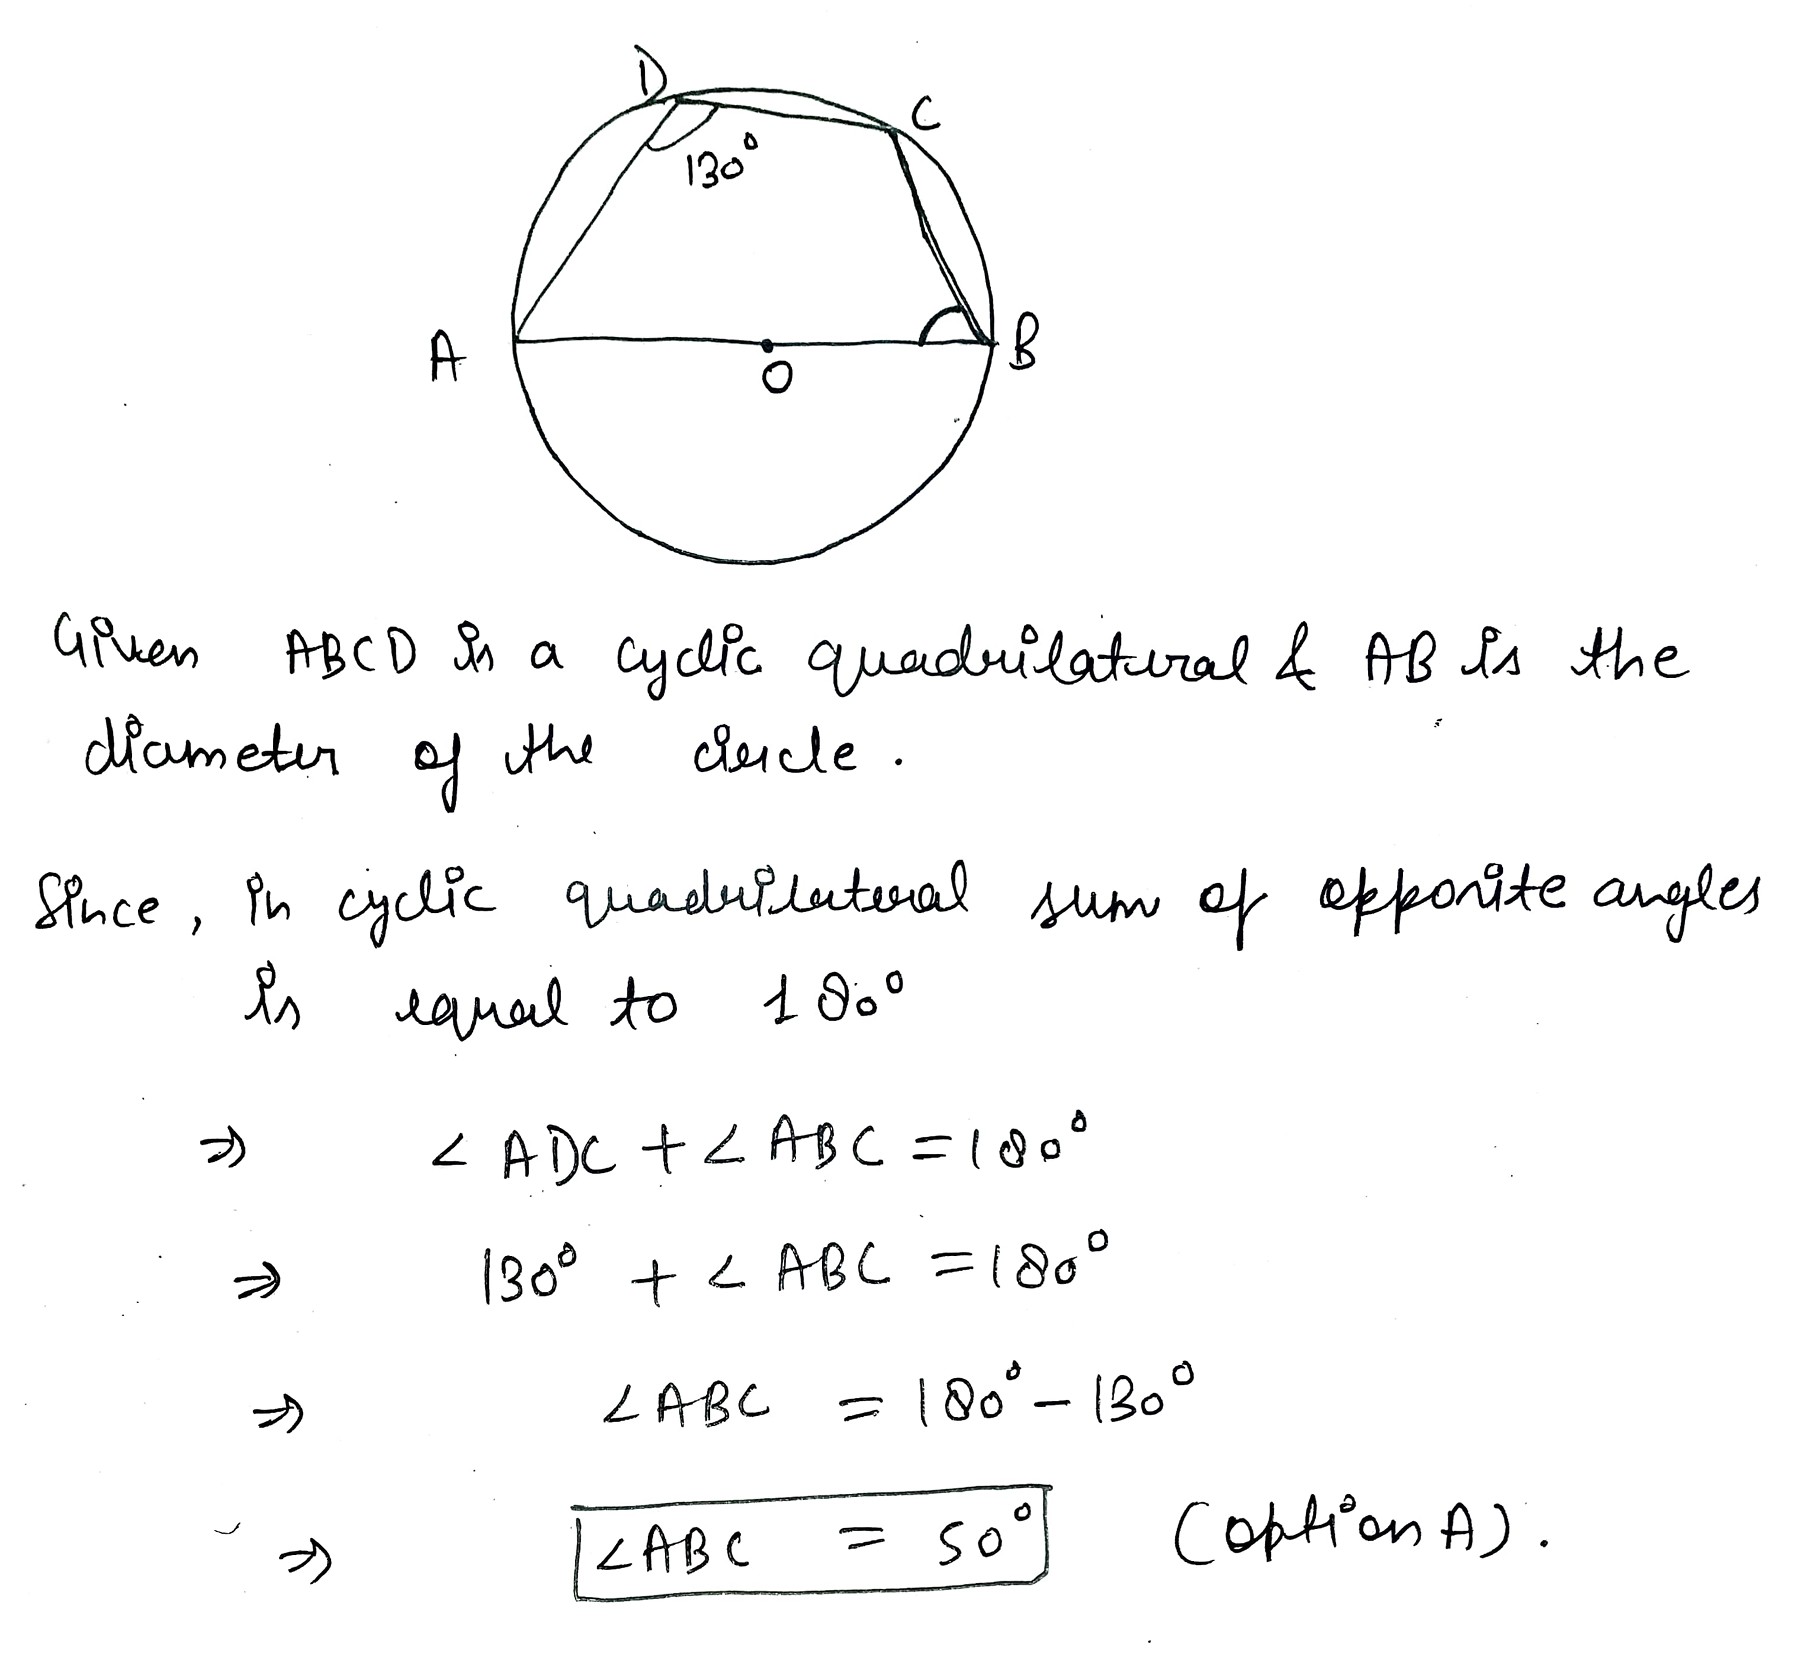 D
C
130°
A
B
O
Given ABCD is a cyclic quadrilateral & AB is the
diameter of the circle.
Since, in cyclic quadrilateral sum of opposite angles
is equal to 180°
⇒ ∠ADC + ∠ABC = 180°
⇒ 130° + ∠ABC = 180°
⇒ ∠ABC = 180° - 130°
⇒ ∠ABC = 50° (option A).